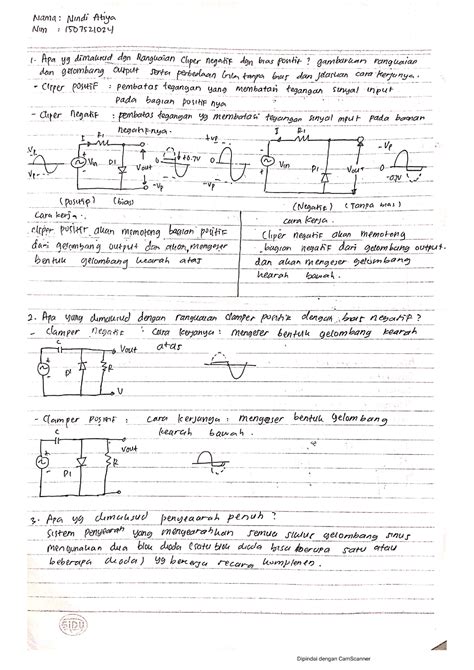 Nama : Nindi Atiya
Nim : 1507521024
1. Apa yg dimaksud dgn Rangkaian Cliper negatif dgn bias positif ? gambarkan rangkaian
dan gelombang output serta perbedaan tanpa bias dan jelaskan cara kerjanya.
- Cliper positif : pembatas tegangan yang membatasi tegangan sinyal input
pada bagian positif nya
- Cliper negatif : pembatas tegangan yg membatasi tegangan sinyal input pada bagian
negatifnya.
Vp
-Vp
Vin
I
R1
D1
Vout
+0.7V
-Vp
+Vp
0
-Vp
I
R1
Vin
D1
Vout
-Vp
0
-0.7V
(positif) (bias)
(Negatif) (Tanpa bias)
Cara kerja :
cliper positif akan memotong bagian positif
dari gelombang output dan akan mengeser
bentuk gelombang kearah atas
Cara Kerja
Cliper negatif akan memotong
bagian negatif dari gelombang output.
dan akan mengeser gelombang
kearah bawah.
2. Apa yang dimaksud dengan rangkaian clamper positif dengan bias negatif ?
- Clamper negatif : Cara kerjanya : mengeser bentuk gelombang kearah
atas
C
Vout
D1
R
V
- Clamper positif : Cara kerjanya : mengeser bentuk gelombang
kearah bawah.
C
Vout
D1
R
3. Apa yg dimaksud penyearah penuh ?
Sistem penyearah yang menyearahkan semua siklus gelombang sinus
menggunakan dua blok dioda (satu blok dioda bisa berupa satu atau
beberapa dioda) yg bekerja secara komplemen.
SIDU
Dipindai dengan CamScanner